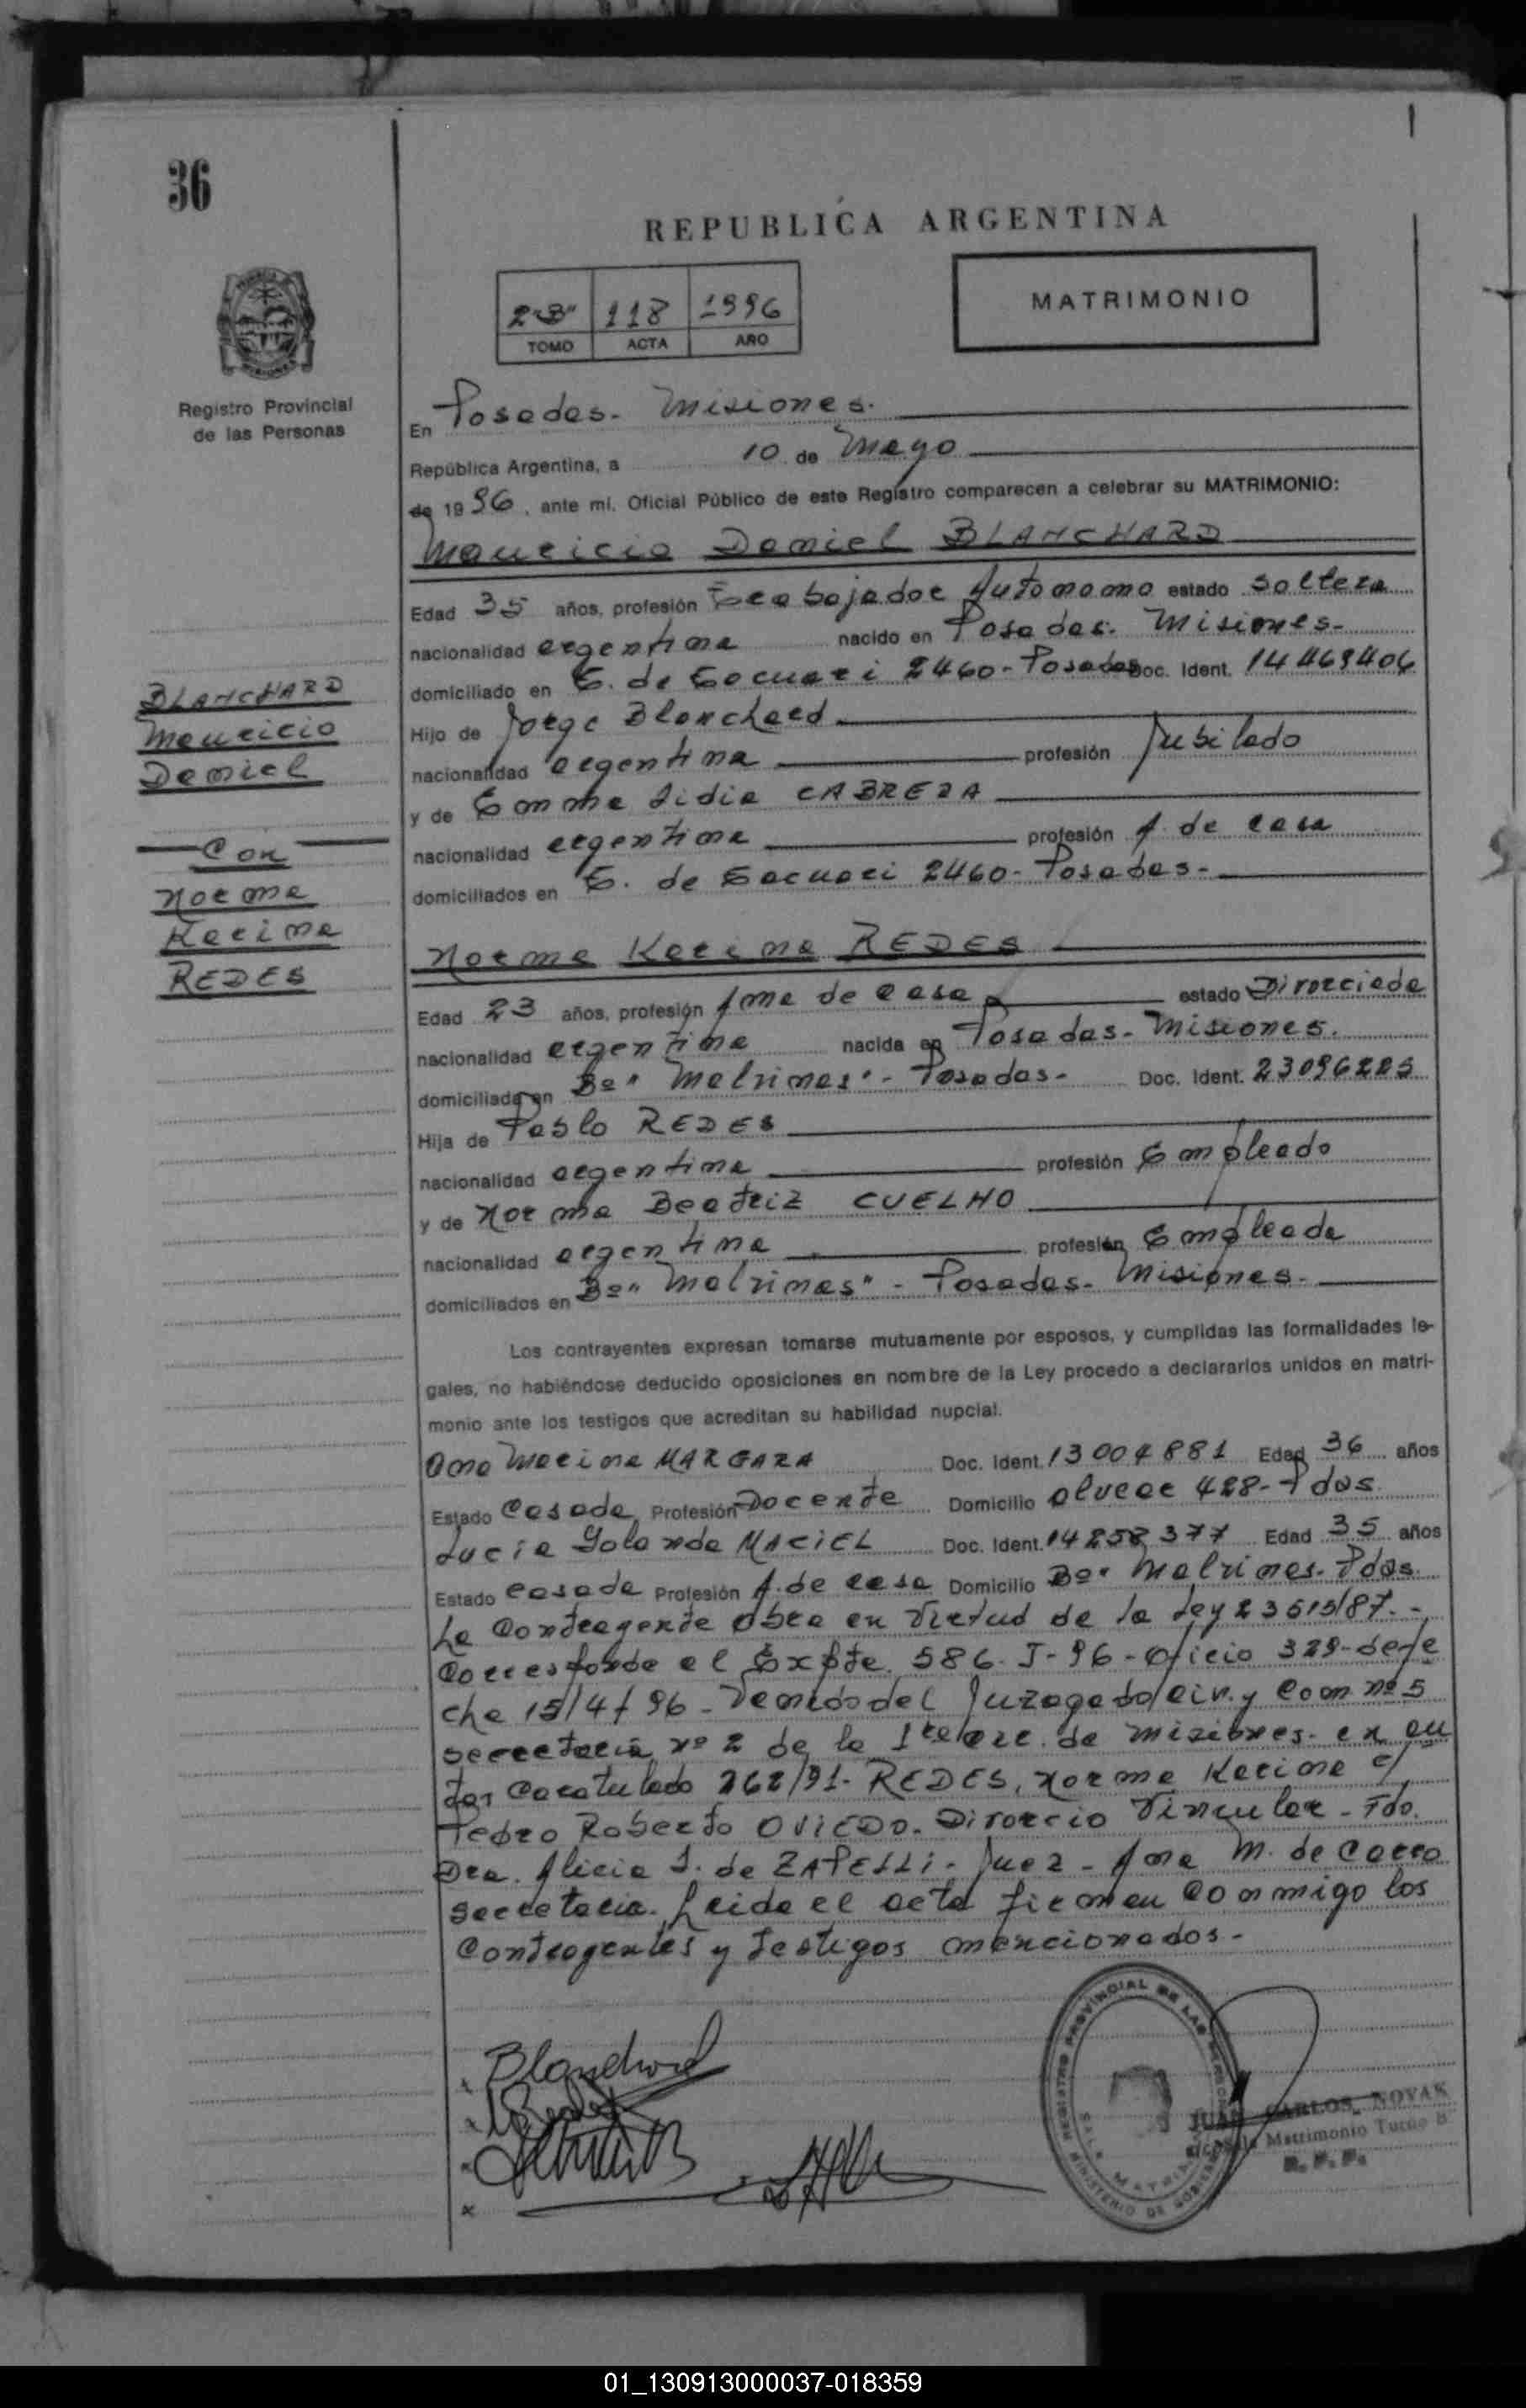 36
REPUBLICA ARGENTINA
2"B" 118 1996
TOMO ACTA AÑO
MATRIMONIO
Registro Provincial
de las Personas
En Posadas. Misiones.
República Argentina, a 10 de Mayo
de 1996, ante mí, Oficial Público de este Registro comparecen a celebrar su MATRIMONIO:
Mauricio Daniel BLANCHARD
Edad 35 años, profesión Trabajador Autonomo estado soltero
nacionalidad argentina nacido en Posadas. Misiones.
domiciliado en E. de Eocuari 2460- Posadas Doc. Ident. 14469406
Hijo de Jorge Blanchard
nacionalidad argentina profesión Jubilado
y de Emma Lidia CABRERA
nacionalidad argentina profesión A. de casa
domiciliados en E. de Eocuari 2460- Posadas-
BLANCHARD
Mauricio
Daniel
Con
Norma
Karina
REDES
Norma Karina REDES
Edad 23 años, profesión Ama de casa estado Divorciada
nacionalidad argentina nacida en Posadas- Misiones.
domiciliada en Bº" Malvinas"- Posadas- Doc. Ident. 23096225
Hija de Pablo REDES
nacionalidad argentina profesión Empleado
y de Norma Beatriz CUELHO
nacionalidad argentina profesión Empleada
domiciliados en Bº" Malvinas" - Posadas- Misiones.
Los contrayentes expresan tomarse mutuamente por esposos, y cumplidas las formalidades le-
gales, no habiéndose deducido oposiciones en nombre de la Ley procedo a declararlos unidos en matri-
monio ante los testigos que acreditan su habilidad nupcial.
Ana Marina MARGARA Doc. Ident. 13004881 Edad 36 años
Estado Casada Profesión Docente Domicilio Alvear 428- Pdas.
Lucia Yolanda MACIEL Doc. Ident. 14258377 Edad 35 años
Estado casada Profesión A. de casa Domicilio Bº" Malvinas- Pdas.
La Contrayente obra en Virtud de la Ley 23515/87.-
Corresponde el Expte. 586-J-96-oficio 329-de fe
cha 15/4/96- del Juzgado Civ. y Com nº 5
secretaria nº 2 de la 1ra Circ. de misiones. en au
tos Caratulado 262/91- REDES, Norma Karina c/
Pedro Roberto OVIEDO. Divorcio Vincular - Fdo.
Dra. Alicia I. de ZAPELLI- Juez - Ana M. de Corro
secretaria. Leida el acta firman conmigo los
Contrayentes y testigos mencionados-
Blanchard
REGISTRO PROVINCIAL DE LAS PERSONAS
MINISTERIO DE GOBIERNO
JUAN CARLOS NOVAK
Matrimonio Turno B
R. P. P.
01_130913000037-018359